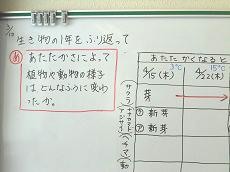 2/10
生き物の1年をふり返って
め
あたたかさによって
植物や動物の様子
はどんなふうに変わ
ったか。
あたたかくなると
3℃ 15℃
4/15(木) 4/22(木)
サクラ 芽
アジサイ
⑦ 新芽
④ 新芽
ヘチマ
動